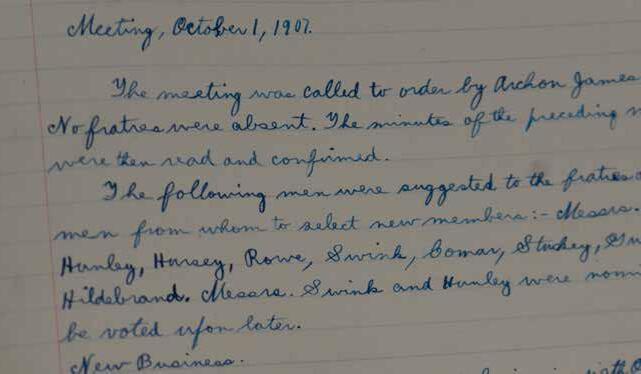 Meeting, October 1, 1907.
The meeting was called to order by Archon James
No fratres were absent. The minutes of the preceding
were then read and confirmed.
The following men were suggested to the fratres
men from whom to select new members:- Messrs.
Hunley, Hursey, Rowe, Swink, Comar, Stukey,
Hildebrand. Messrs. Swink and Hunley were
be voted upon later.
New Business.